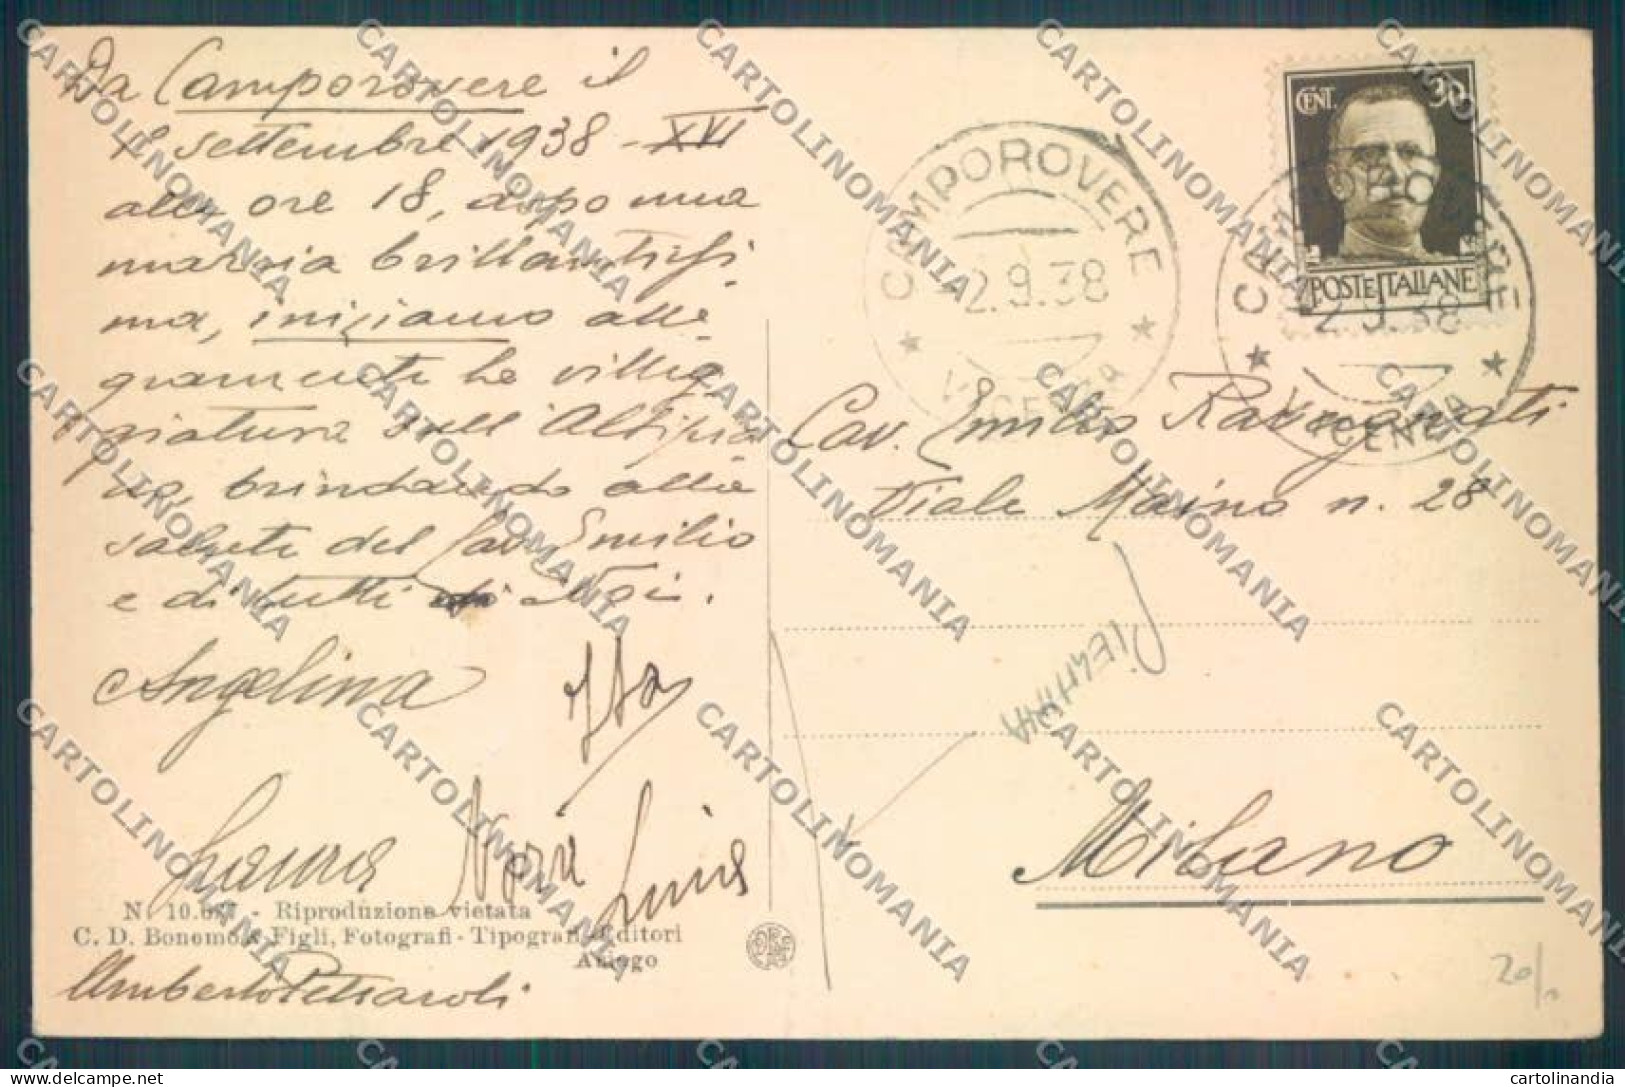 Da Camporovere il
1 settembre 1938 - XVI
alle ore 18, dopo una
marcia brillantissi
ma, iniziamo alle
gramente la villeg
giatura sull' Altipia
no, brindando alla
salute del Cav. Emilio
e di tutti Noi.
Angelina
Laura Nora
N. 10.627 - Riproduzione vietata
C. D. Bonomo & Figli, Fotografi - Tipografi - Editori
Asiago
Umberto Petraroli
CAMPOROVERE
2.9.38
VICENZA
CENT. 30
POSTE ITALIANE
CAMPOROVERE
2.9.38
VICENZA
Cav. Emilio Ravegnati
Viale Maino n. 28
Milano
20/
CARTOLINOMANIA
cartolinandia